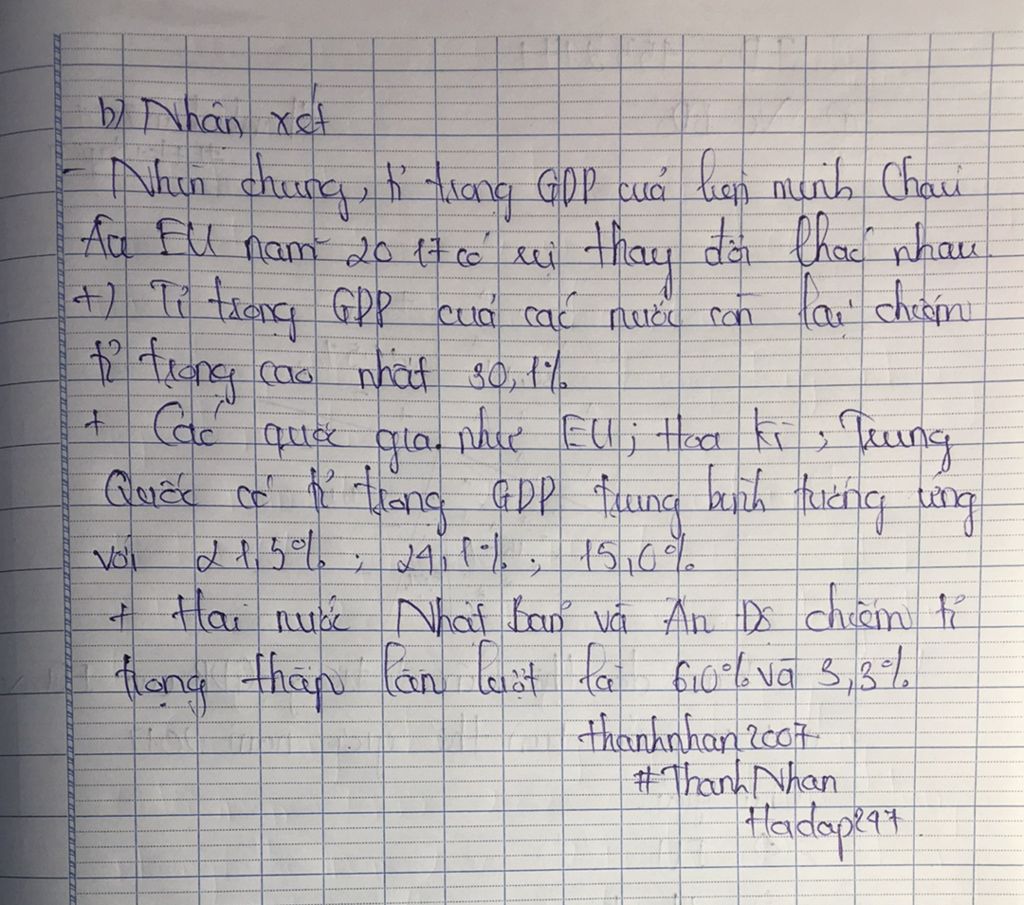 b) Nhân xét
- Nhìn chung, tỉ trọng GDP cuả liên minh Châu
Âu EU năm 2017 có sự thay đổi khác nhau.
+) Tỉ trọng GDP cuả các nước còn lại chiếm
tỉ trọng cao nhất 30,1%
+ Các quốc gia như EU; Hoa kì; Trung
Quốc có tỉ trọng GDP trung bình tương ứng
với 21,5%; 24,1%; 15,0%
+ Hai nước Nhật Bản và Ấn Độ chiếm tỉ
trọng thấp lần lượt là 6,0% và 3,3%
thanhnhan2007
#ThanhNhan
Hadap247.